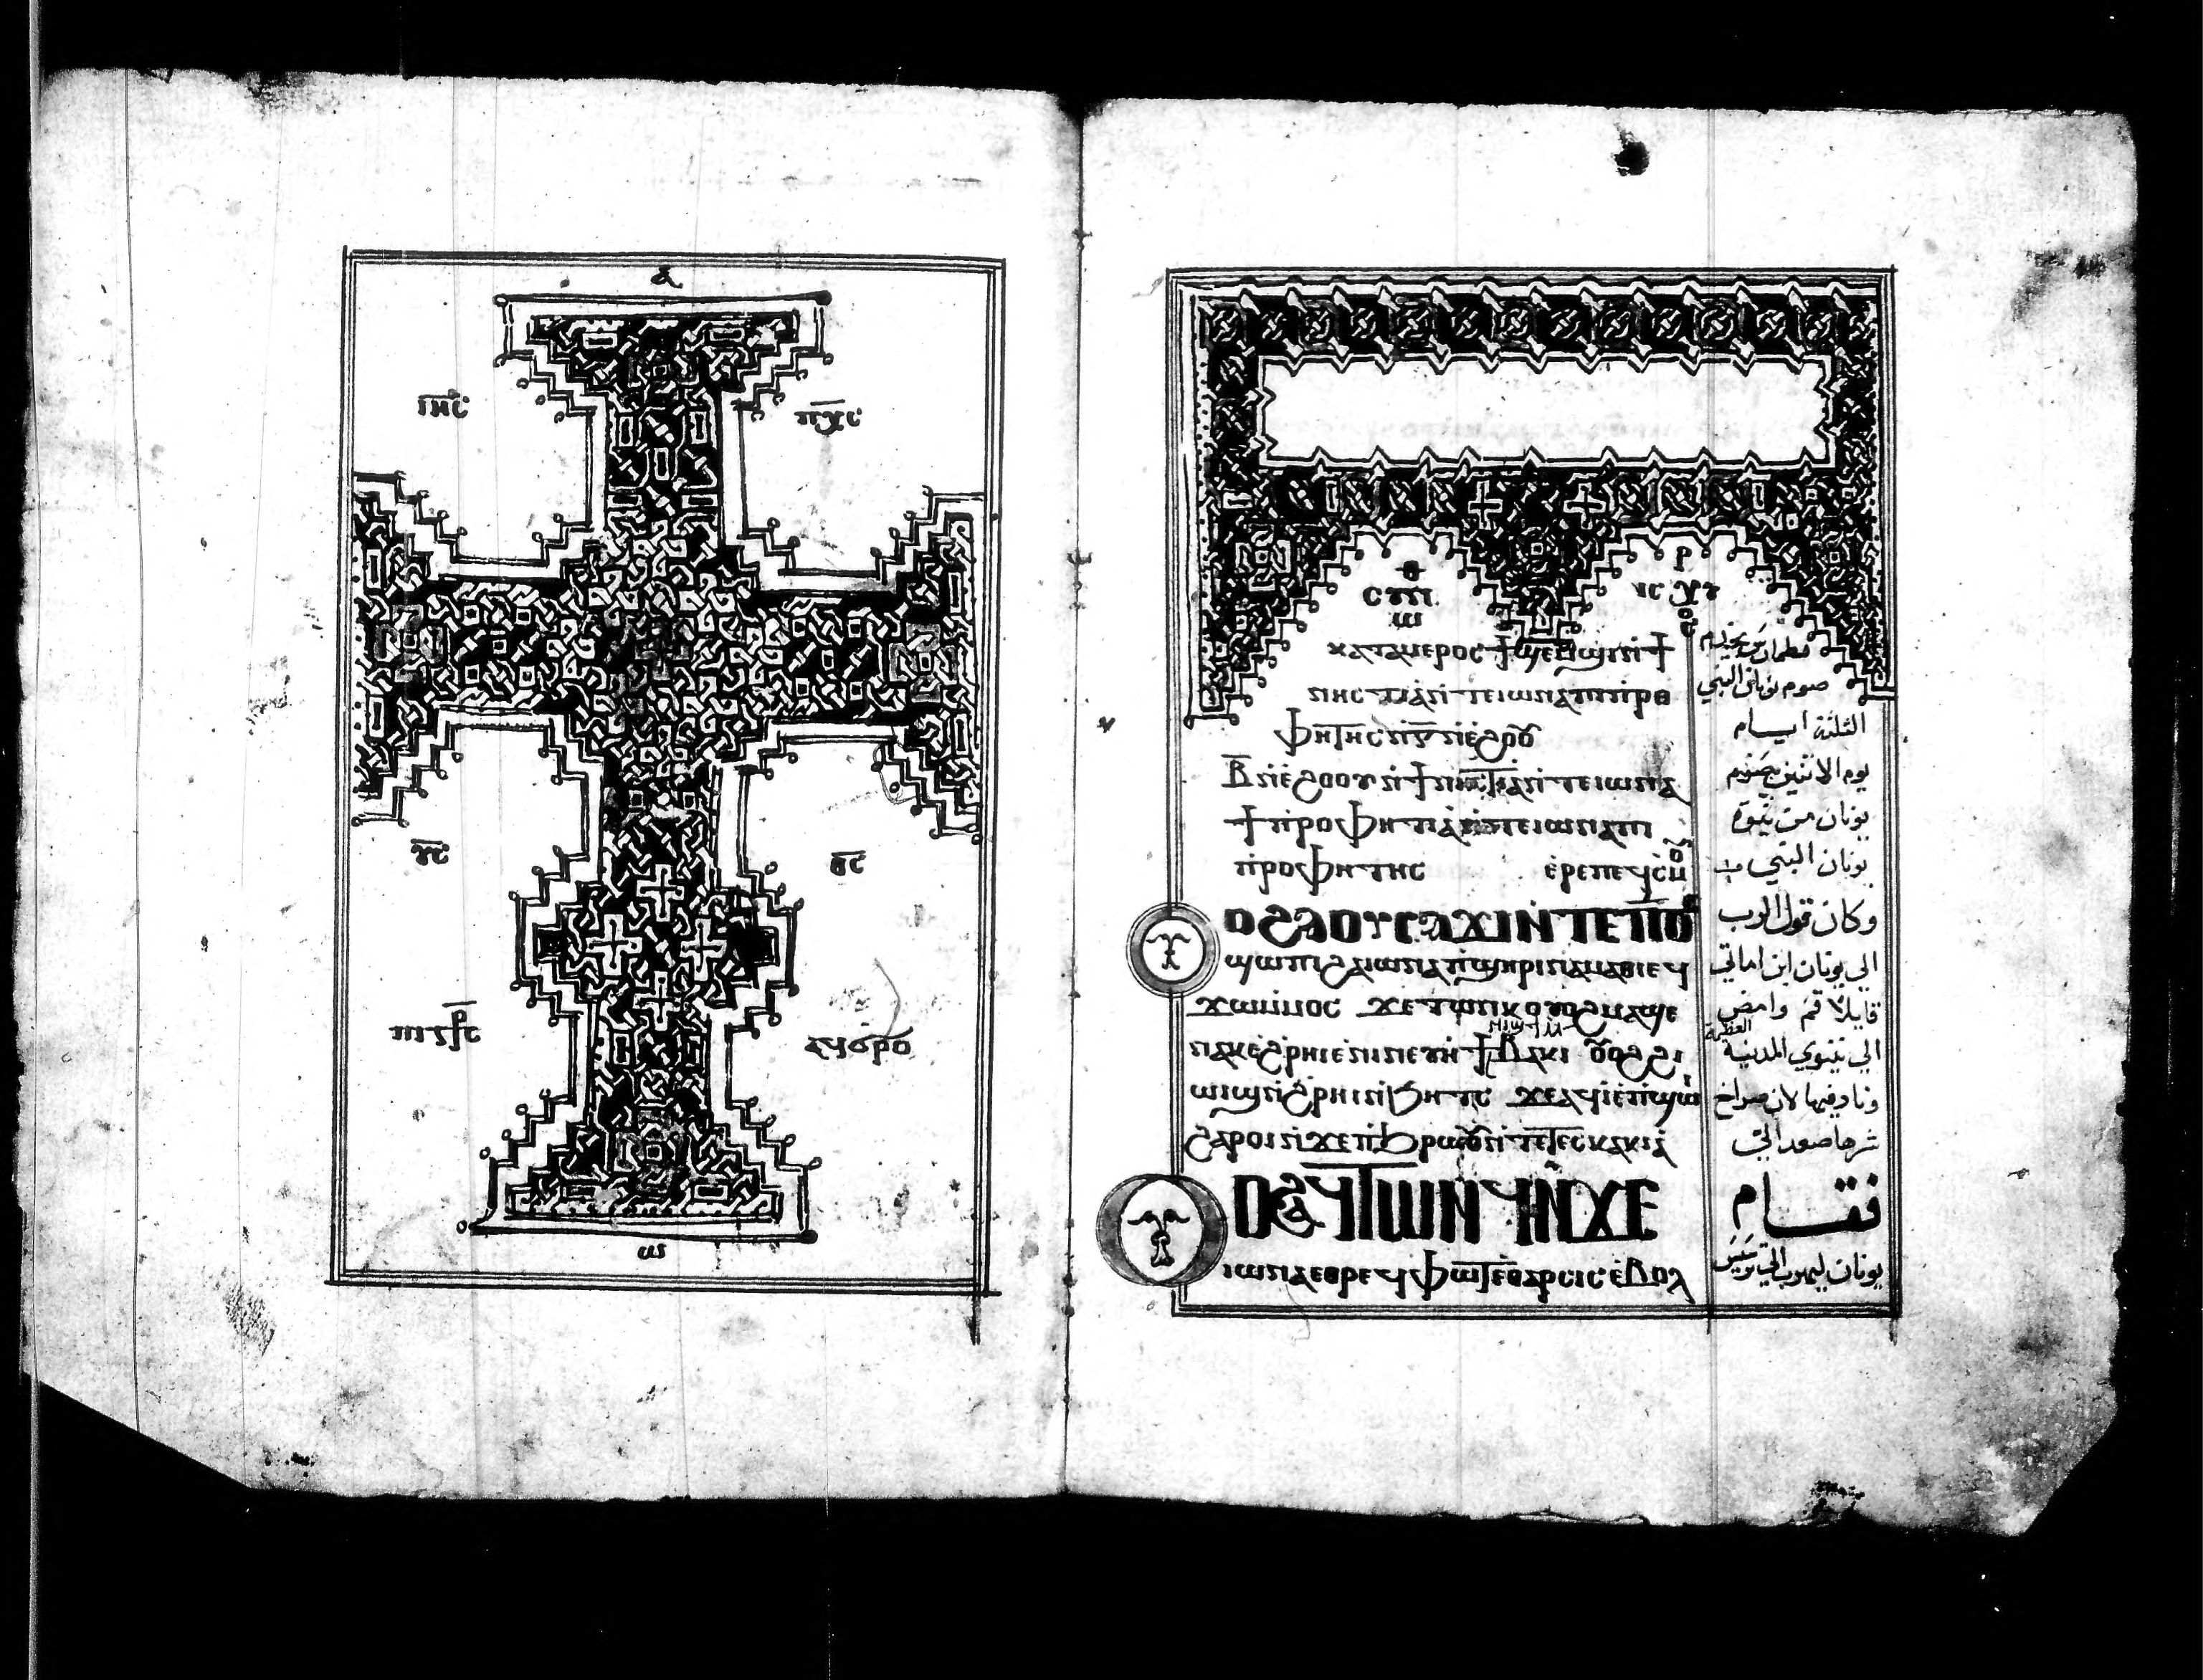 ⲁ̅
ⲓⲏ̅ⲥ̅ ⲡⲭ̅ⲥ̅
ⲩ̅ⲥ̅ ⲑ̅ⲥ̅
ⲡⲓⲥⳁⲥ ⲁϥϭⲣⲟ
ⲱ
ⲥⲡⲓ ⲓⲥ ⲭⲥ
ⲕⲁⲧⲁⲙⲉⲣⲟⲥ
ⲛⲏⲥⲧⲓⲁ ⲛⲧⲉ ⲓⲱⲛⲁ ⲡⲓⲡⲣⲟ
ⲫⲏⲧⲏⲥ ⲡⲓⲅ̅ ⲛⲉϩⲟⲟⲩ
ⲃ̅ ⲛⲉϩⲟⲟⲩ ⲛϯⲛⲏⲥⲧⲓⲁ ⲛⲧⲉ ⲓⲱⲛⲁ
ⲓⲱⲛⲁ ⲡⲓ
ⲡⲣⲟⲫⲏⲧⲏⲥ ⲉⲣⲉⲡⲉϥⲥⲙⲟⲩ
ⲟⲩⲟϩ ⲁⲟⲩⲥⲁϫⲓ ⲛⲧⲉ ⲡϭⲟⲓⲥ
ϣⲱⲡⲓ ϩⲁ ⲓⲱⲛⲁ ⲡϣⲏⲣⲓ ⲛⲁⲙⲁⲑⲓ ⲉϥ
ϫⲱ ⲙⲙⲟⲥ ϫⲉ ⲧⲱⲛⲕ ⲟⲩⲟϩ ⲙⲁϣⲉ
ⲛⲁⲕ ⲉϩⲣⲏⲓ ⲉⲛⲓⲛⲉⲩⲏ ϯⲛⲓϣϯ ⲙⲃⲁⲕⲓ ⲟⲩⲟϩ ϩⲓ
ⲱⲓϣ ⲛϩⲣⲏⲓ ⲛϧⲏⲧⲥ ϫⲉ ⲁϥⲓ ⲉⲡϣⲱⲓ
ϩⲁⲣⲟⲓ ⲛϫⲉ ⲡϧⲣⲱⲟⲩ ⲛⲧⲉ ⲧⲉⲥⲕⲁⲕⲓⲁ
ⲟⲩⲟϩ ⲁϥⲧⲱⲛϥ ⲛϫⲉ
ⲓⲱⲛⲁ ⲉⲑⲣⲉϥⲫⲱⲧ ⲉⲑⲁⲣⲥⲓⲥ ⲉⲃⲟⲗ
صوم يونان النبي
الثلثة ايام
يوم الاثنين
يونان من نينوة
يونان النبي
وكان قول الرب
الي يونان ابن اماتي
قايلا قم وامض
الي نينوي المدينة العظيمة
وناد فيها لان صراخ
شرها صعد الي
فقام
يونان ليهرب الي ترسيس